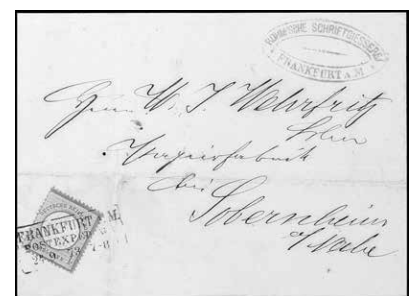 RÖMISCHE SCHRIFTGIESSEREI
FRANKFURT a. M.
Herrn W. J. Wehrfritz
Sohn
Papierfabrik
bei
Sobernheim
a/Nahe
FRANKFURT A. M.
POST EXPED
7-8